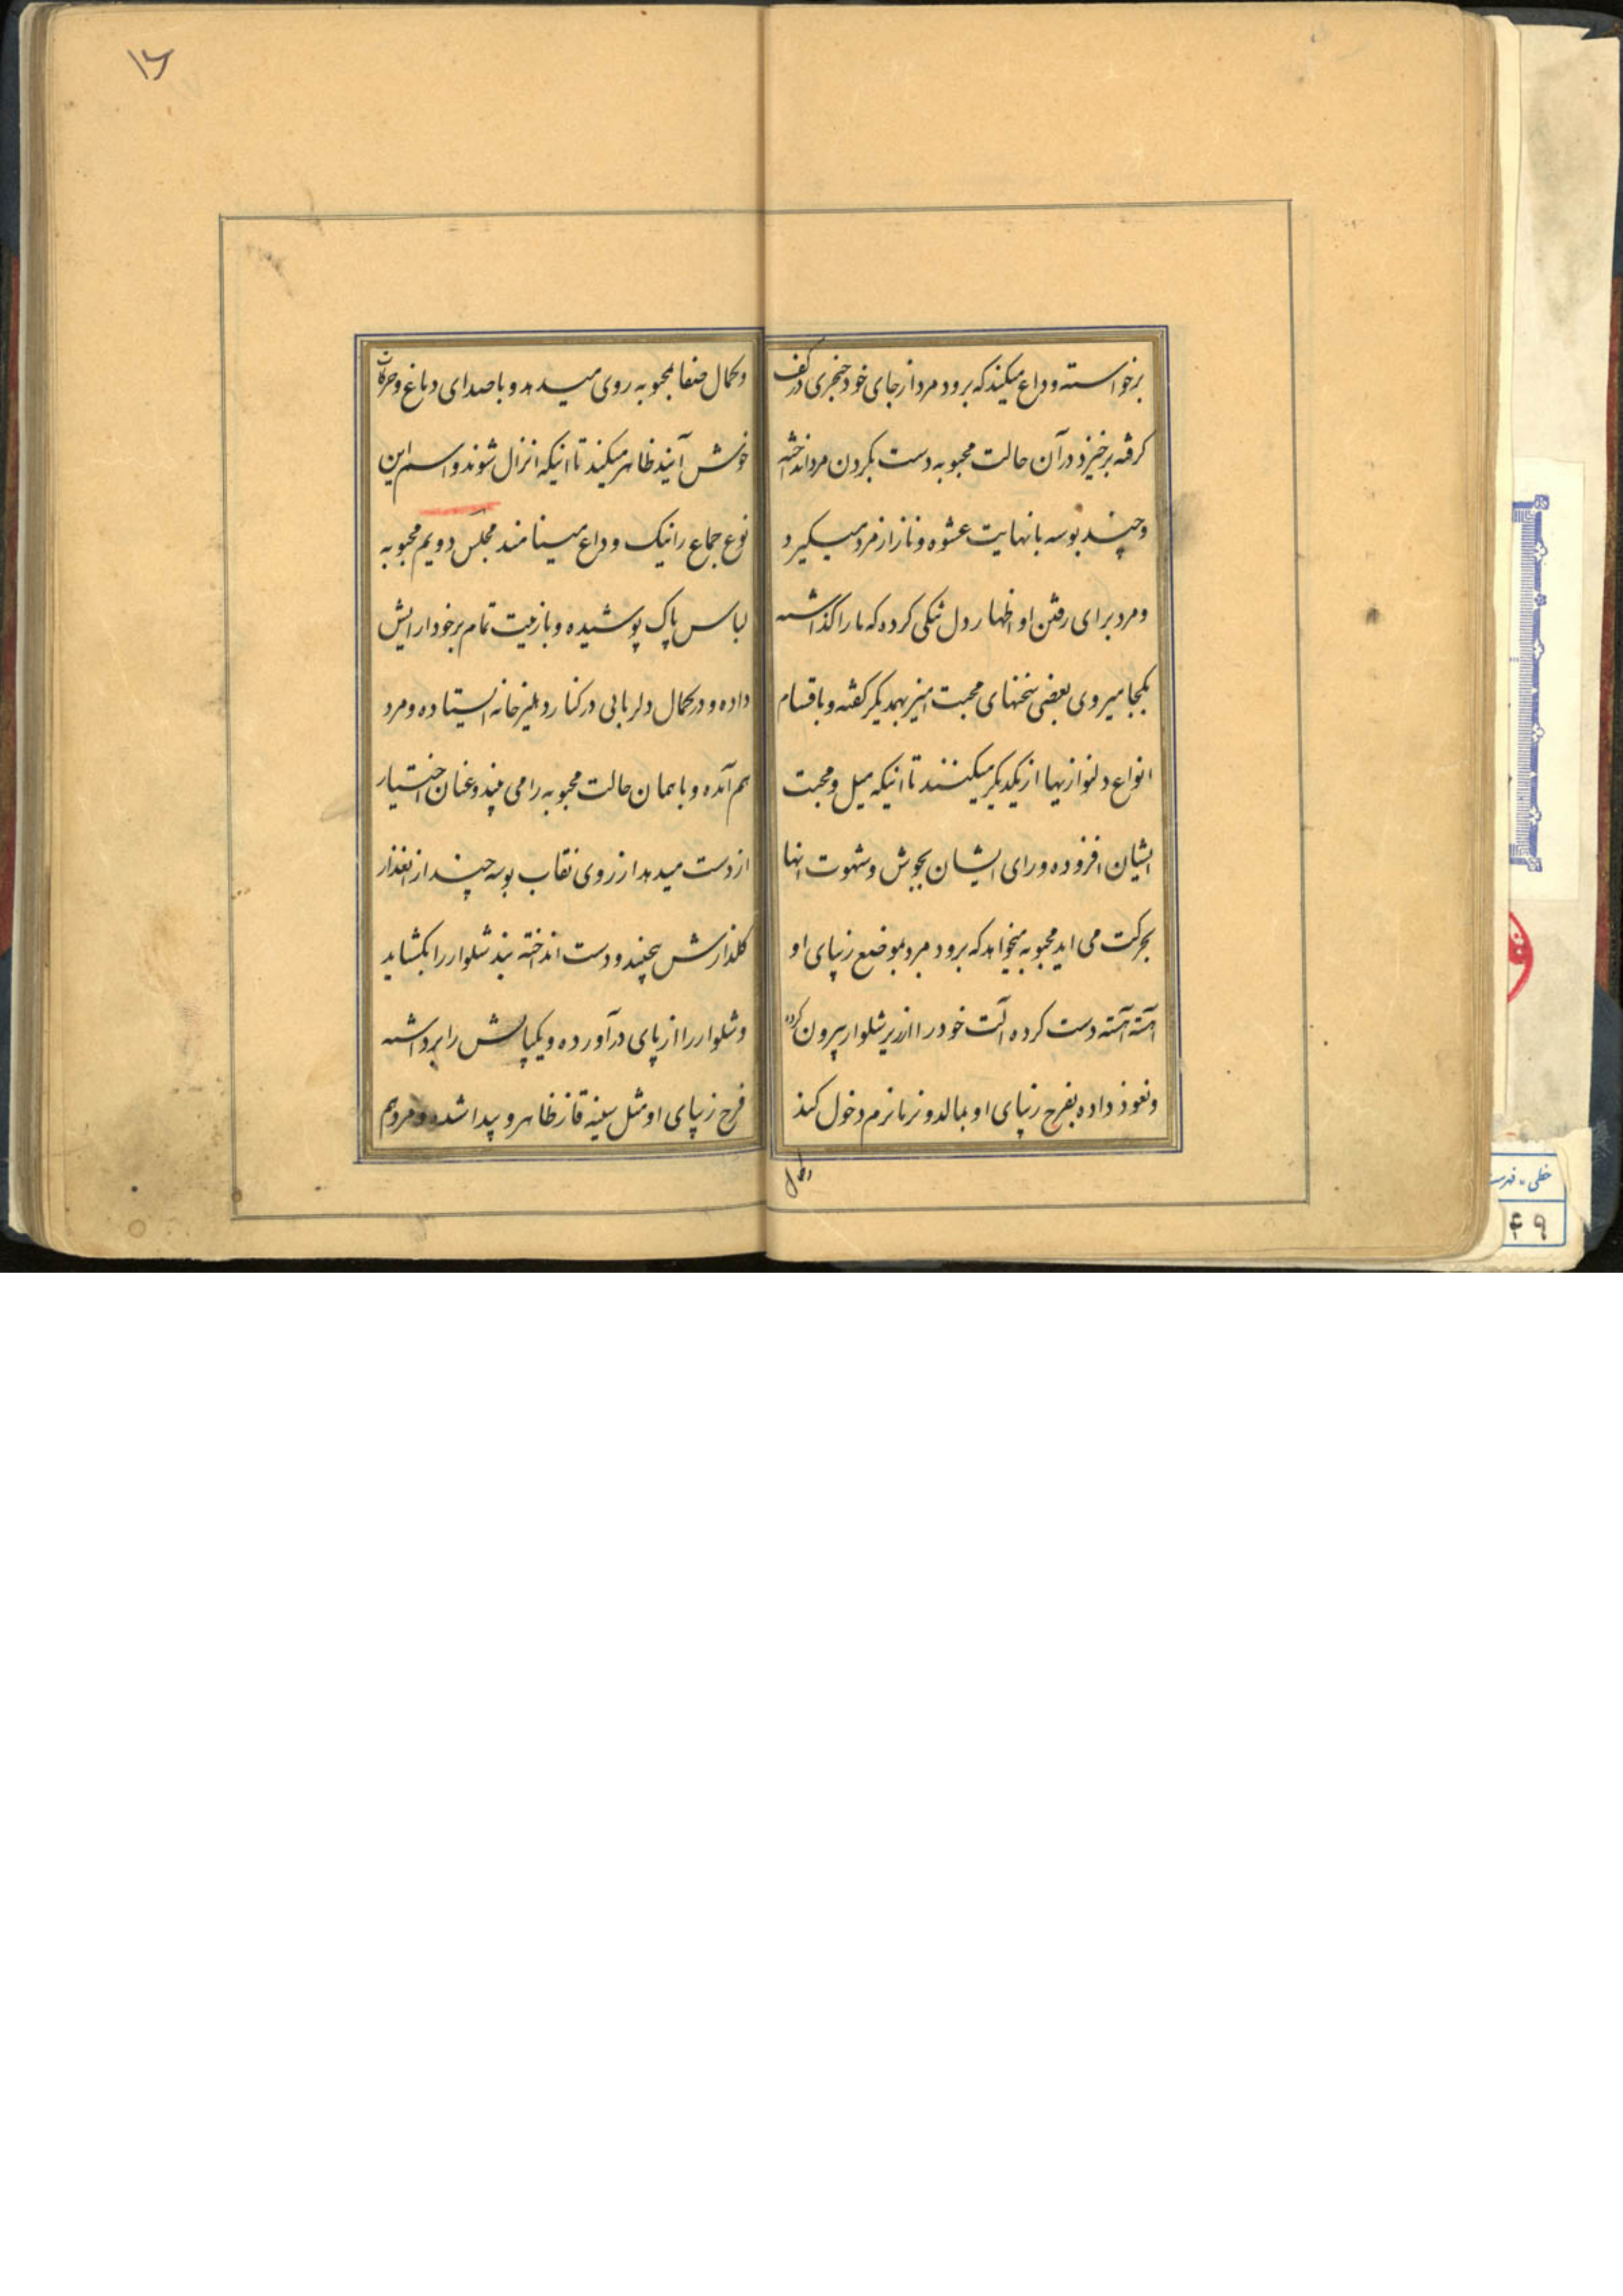 برخواسته وداع میکند که برود مرد از جای خود خنجری در کف
گرفته برخیزد در آن حالت محبوبه دست بگردن مرد انداخته
و چند بوسه با نهایت عشوه و ناز از مرد میگیرد
و مرد برای رفتن او اظهار دل تنگی کرده که ما را گذاشته
بکجا میروی بعضی سخنهای محبت امیز بهمدیگر گفته و باقسام
انواع دلنوازیها از یکدیگر میکنند تا اینکه میل و محبت
ایشان افزوده و رای ایشان بجوش و شهوت انها
بحرکت می اید محبوبه میخواهد که برود مرد بموضع زیبای او
اهسته اهسته دست کرده الت خود را از زیر شلوار بیرون کرده
و نعوذ داده بفرج زیبای او بمالد و نرمانرم دخول کند
و کمال صفا بمحبوبه روی میدهد و با صدای دماغ و حرکات
خوش آیند ظاهر میکند تا اینکه انزال شوند و اسم این
نوع جماع را نیک وداع مینامند مجلس دویم محبوبه
لباس پاک پوشیده و با زینت تمام بر خود ارایش
داده و در کمال دلربایی در کنار دهلیز خانه ایستاده و مرد
هم آمده و با همان حالت محبوبه را می بیند و عنان اختیار
از دست میدهد از روی نقاب بوسه چند از انعذار
گلذارش بچیند و دست انداخته بند شلوار را بگشاید
و شلوار را از پای در آورده و یکپایش را برداشته
فرج زیبای او مثل سینه قاز ظاهر و پیدا شده و مرد هم
۱۶
خطی - فهرست
۴۹